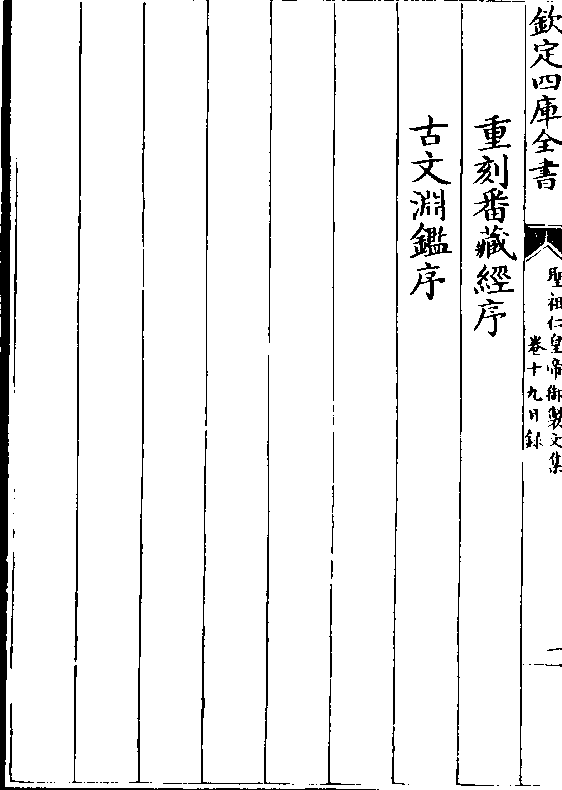 欽定四庫全書
聖祖仁皇帝御製文集
卷十九目錄
一
重刻番藏經序
古文淵鑑序